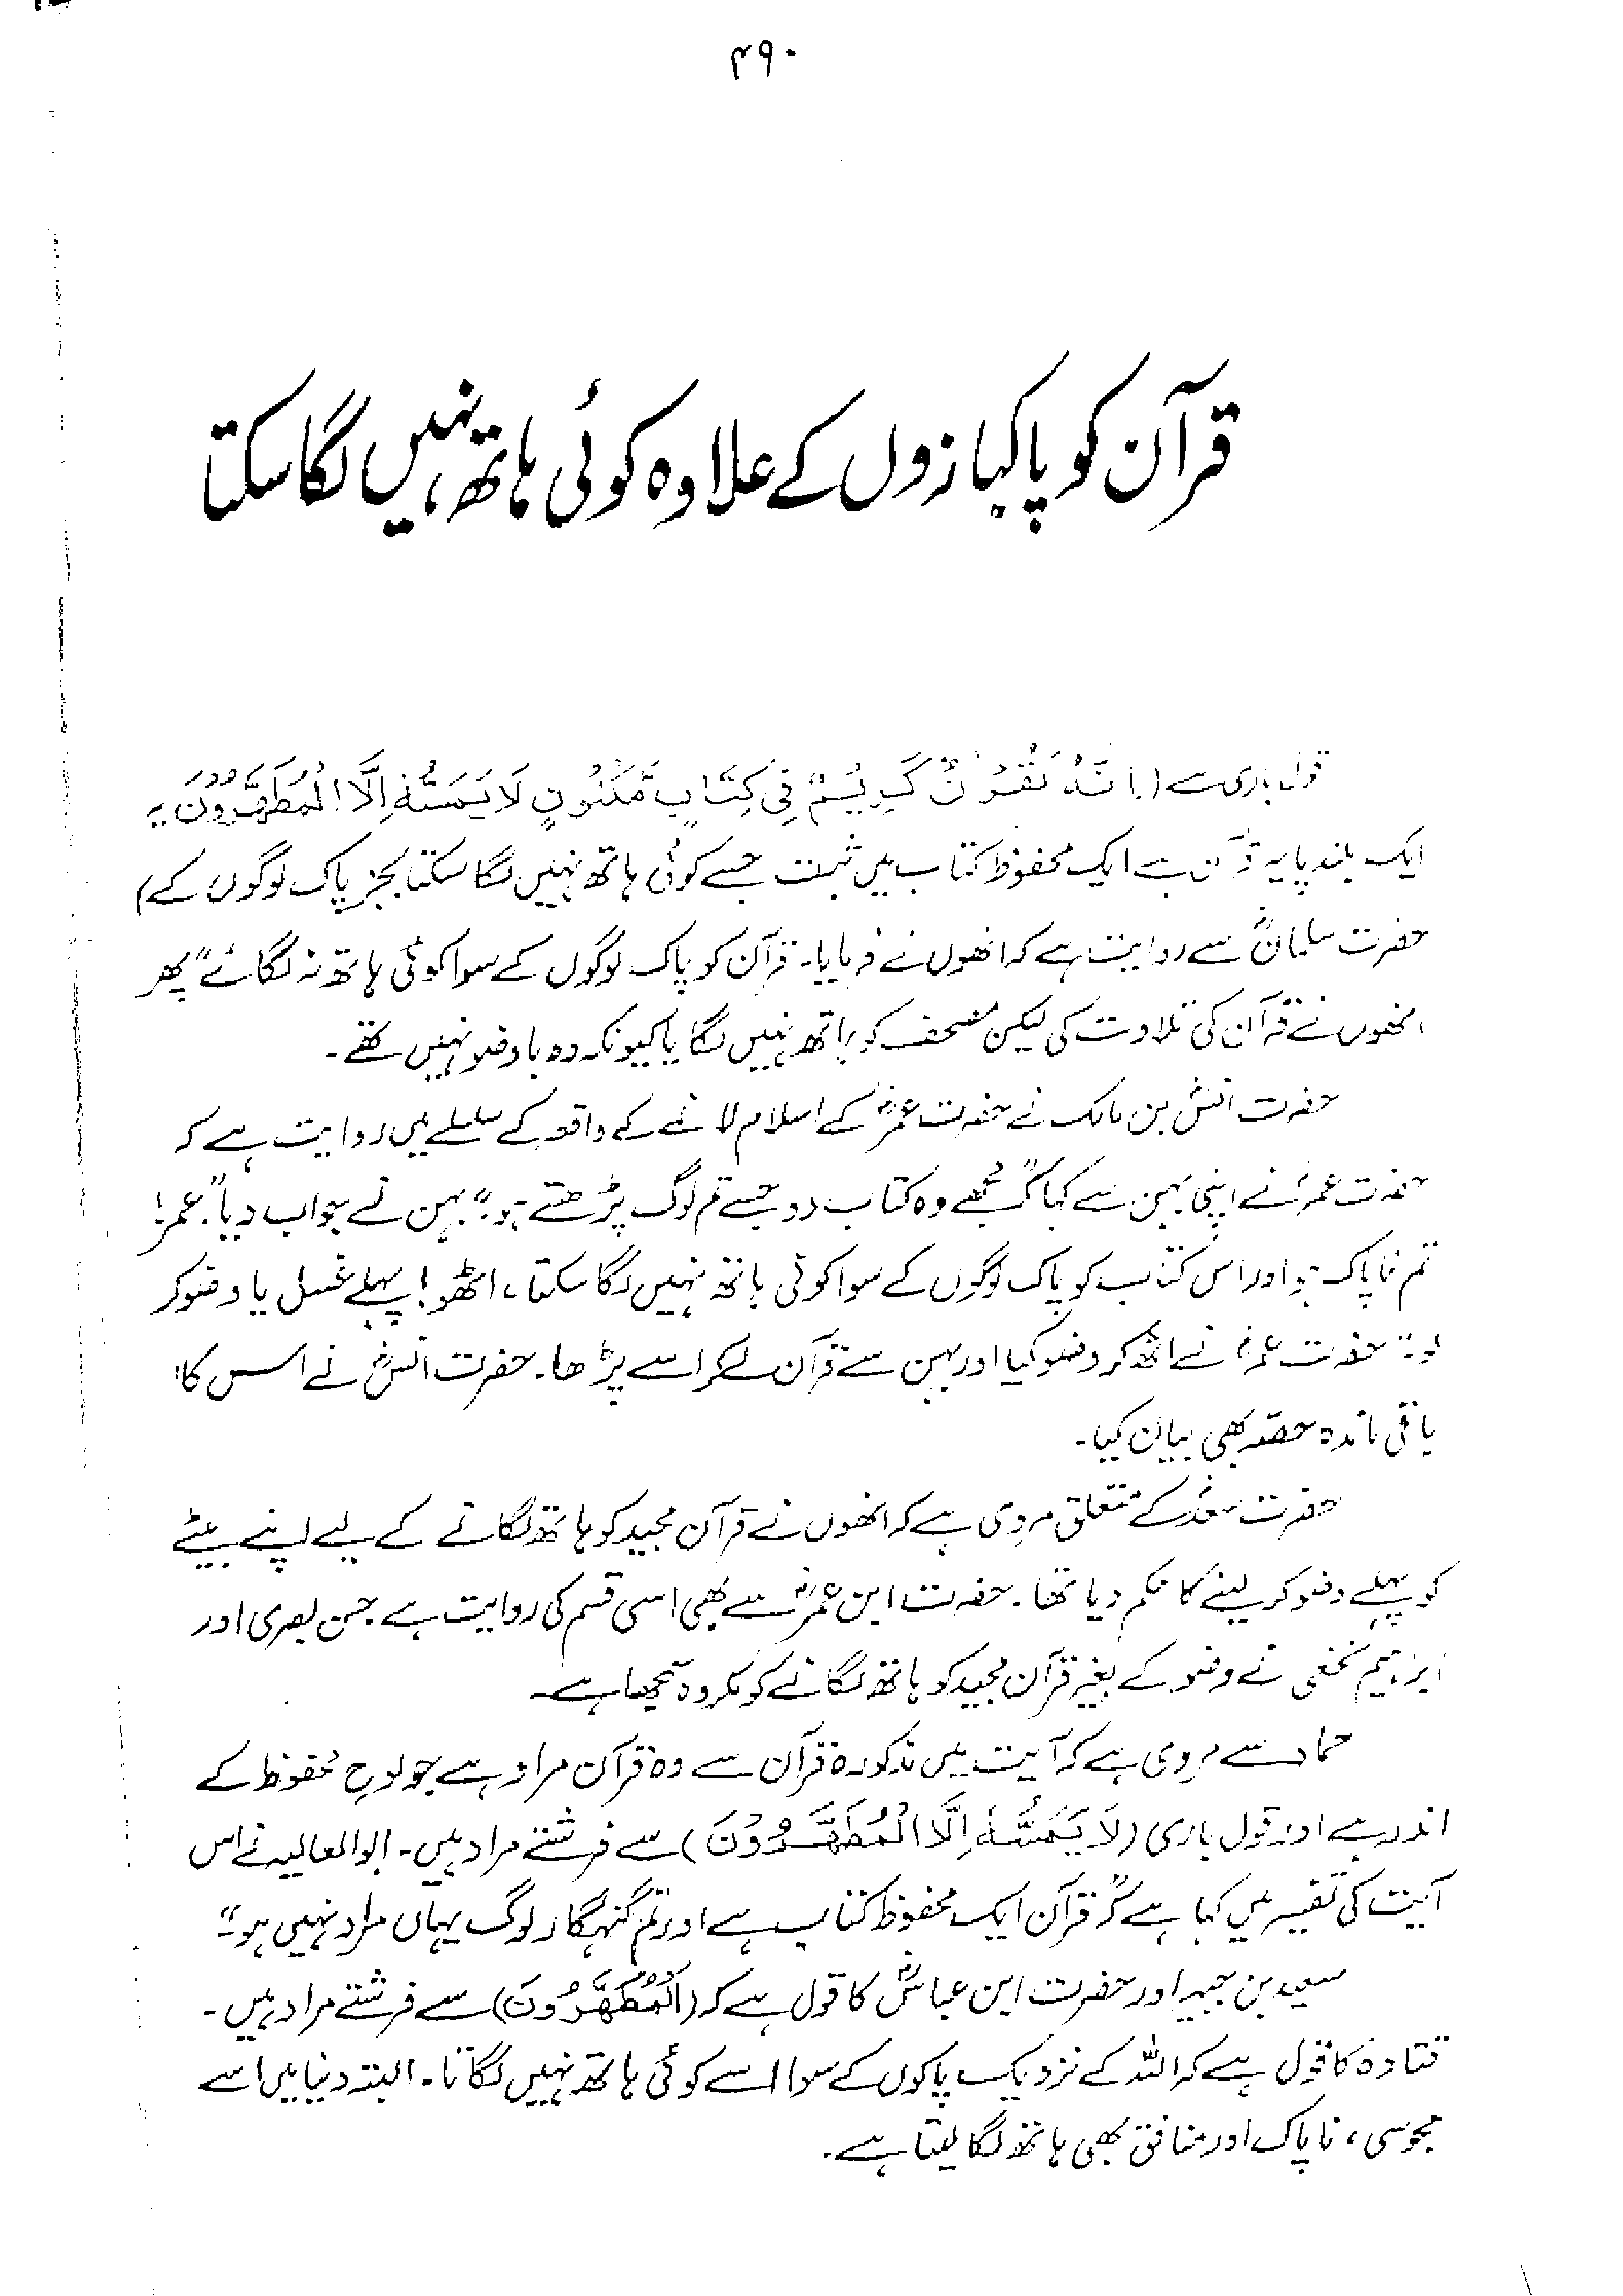 ۴۹۰
قرآن کو پاکبازوں کے علاوہ کوئی ہاتھ نہیں لگا سکتا
قول باری ہے (اِنَّهٗ لَقُرْاٰنٌ كَرِيْمٌ فِيْ كِتَابٍ مَّكْنُوْنٍ لَا يَمَسُّهٗ اِلَّا الْمُطَهَّرُوْنَ یہ
ایک بلند پایہ قرآن ہے ایک محفوظ کتاب میں ثبت جسے کوئی ہاتھ نہیں لگا سکتا بجز پاک لوگوں کے)
حضرت سلمانؓ سے روایت ہے کہ انھوں نے فرمایا۔ قرآن کو پاک لوگوں کے سوا کوئی ہاتھ نہ لگائے" پھر
انھوں نے قرآن کی تلاوت کی لیکن مصحف کو ہاتھ نہیں لگایا کیونکہ وہ باوضو نہیں تھے۔
حضرت انسؓ بن مالک نے حضرت عمرؓ کے اسلام لانے کے واقعہ کے سلسلے میں روایت ہے کہ
حضرت عمرؓ نے اپنی بہن سے کہا "مجھے وہ کتاب دو جسے تم لوگ پڑھتے ہو" بہن نے جواب دیا "عمر!
تم ناپاک ہو اور اس کتاب کو پاک لوگوں کے سوا کوئی ہاتھ نہیں لگا سکتا، اٹھو! پہلے غسل یا وضو کر
لو" حضرت عمرؓ نے اٹھ کر وضو کیا اور بہن سے قرآن لے کر اسے پڑھا۔ حضرت انسؓ نے اس کا
باقی ماندہ حصہ بھی بیان کیا۔
حضرت سعدؓ کے متعلق مروی ہے کہ انھوں نے قرآن مجید کو ہاتھ لگانے کے لیے اپنے بیٹے
کو پہلے وضو کر لینے کا حکم دیا تھا۔ حضرت ابن عمرؓ سے بھی اسی قسم کی روایت ہے۔ حسن بصری اور
ابراہیم نخعی نے وضو کے بغیر قرآن مجید کو ہاتھ لگانے کو مکروہ سمجھا ہے۔
حماد سے مروی ہے کہ آیت میں مذکورہ قرآن سے وہ قرآن مراد ہے جو لوح محفوظ کے
اندر ہے اور قول باری (لَا يَمَسُّهٗ اِلَّا الْمُطَهَّرُوْنَ) سے فرشتے مراد ہیں۔ ابوالعالیہ نے اس
آیت کی تفسیر میں کہا ہے کہ "قرآن ایک محفوظ کتاب ہے اور تم گنہگار لوگ یہاں مراد نہیں ہو"
سعید بن جبیر اور حضرت ابن عباسؓ کا قول ہے کہ (اَلْمُطَهَّرُوْنَ) سے فرشتے مراد ہیں۔
قتادہ کا قول ہے کہ اللہ کے نزدیک پاکوں کے سوا اسے کوئی ہاتھ نہیں لگاتا۔ البتہ دنیا میں اسے
مجوسی، ناپاک اور منافق بھی ہاتھ لگا لیتا ہے۔